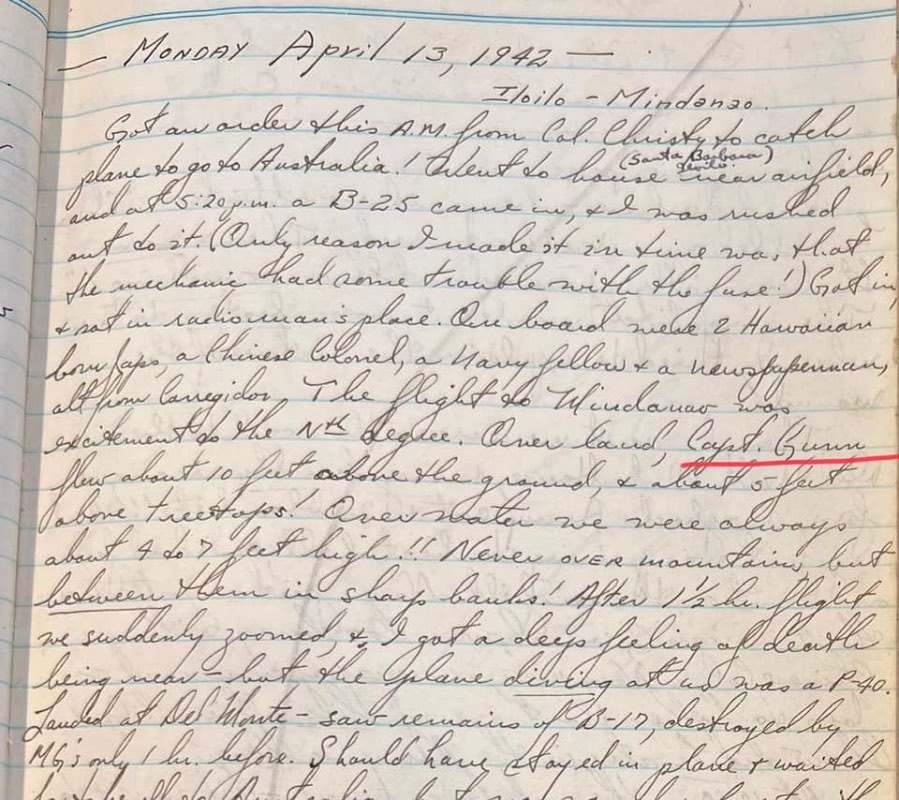 — Monday April 13, 1942 —
Iloilo - Mindanao.
Got an order this A.M. from Col. Christy to catch
plane to go to Australia! Went to house (Santa Barbara) Iloilo. near airfield,
and at 5:20 p.m. a B-25 came in, & I was rushed
out to it. (Only reason I made it in time was that
the mechanic had some trouble with the fuse!) Got in,
& sat in radioman's place. On board were 2 Hawaiian
born Japs, a Chinese Colonel, a Navy fellow & a newspaperman,
all from Corregidor. The flight to Mindanao was
excitement to the Nth degree. Over land, Capt. Gunn
flew about 10 feet above the ground, & about 5 feet
above treetops! Over water we were always
about 4 to 7 feet high!!! Never over mountains, but
between them in sharp banks! After 1 1/2 hr. flight
we suddenly zoomed, & I got a deep feeling of death
being near - but the plane diving at us was a P-40.
Landed at Del Monte - saw remains of B-17, destroyed by
MG's only 1 hr. before. Should have stayed in plane & waited